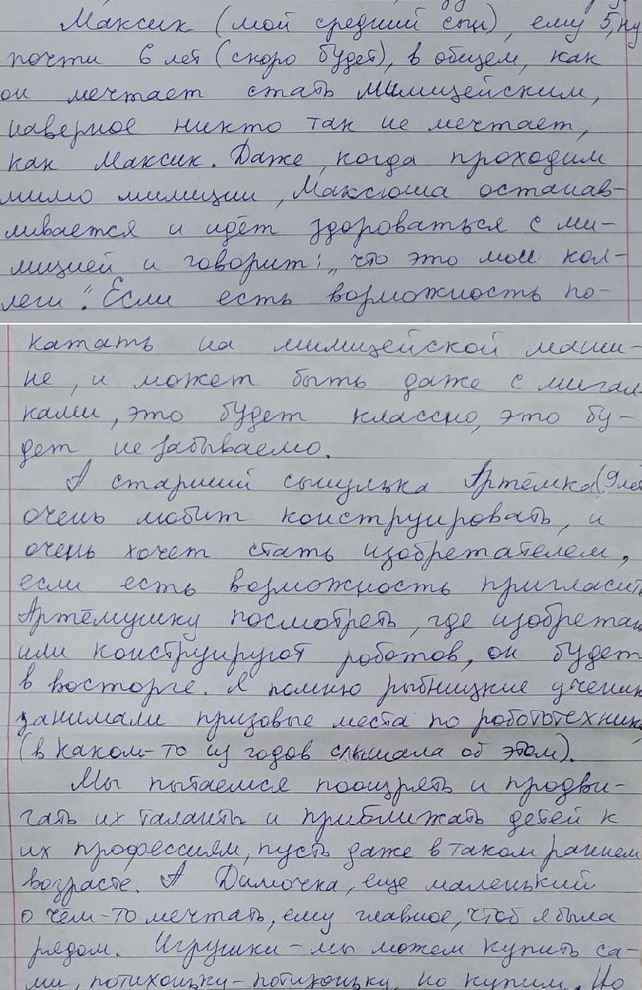 Максик (мой средний сын), ему 5, ну
почти 6 лет (скоро будет), в общем, как
он мечтает стать милицейским,
наверное никто так не мечтает,
как Максик. Даже, когда проходим
мимо милиции, Максюша останав-
ливается и идёт здороваться с ми-
лицией и говорит: „что это мои кол-
леги". Если есть возможность по-
катать на милицейской маши-
не, и может быть даже с мигал-
ками, это будет классно, это бу-
дет незабываемо.
А старший сынулька Артёмка (9 лет
очень любит конструировать, и
очень хочет стать изобретателем,
если есть возможность пригласить
Артёмушку посмотреть, где изобретают
или конструируют роботов, он будет
в восторге. Я помню рыбницкие ученики
занимали призовые места по робототехнике
(в каком-то из годов слышала об этом).
Мы пытаемся поощрять и продви-
гать их таланты и приближать детей к
их профессиям, пусть даже в таком раннем
возрасте. А Димочка, еще маленький
о чём-то мечтать, ему главное, чтоб я была
рядом. Игрушки – мы можем купить са-
ми, потихоньку-потихоньку, но купим. Но